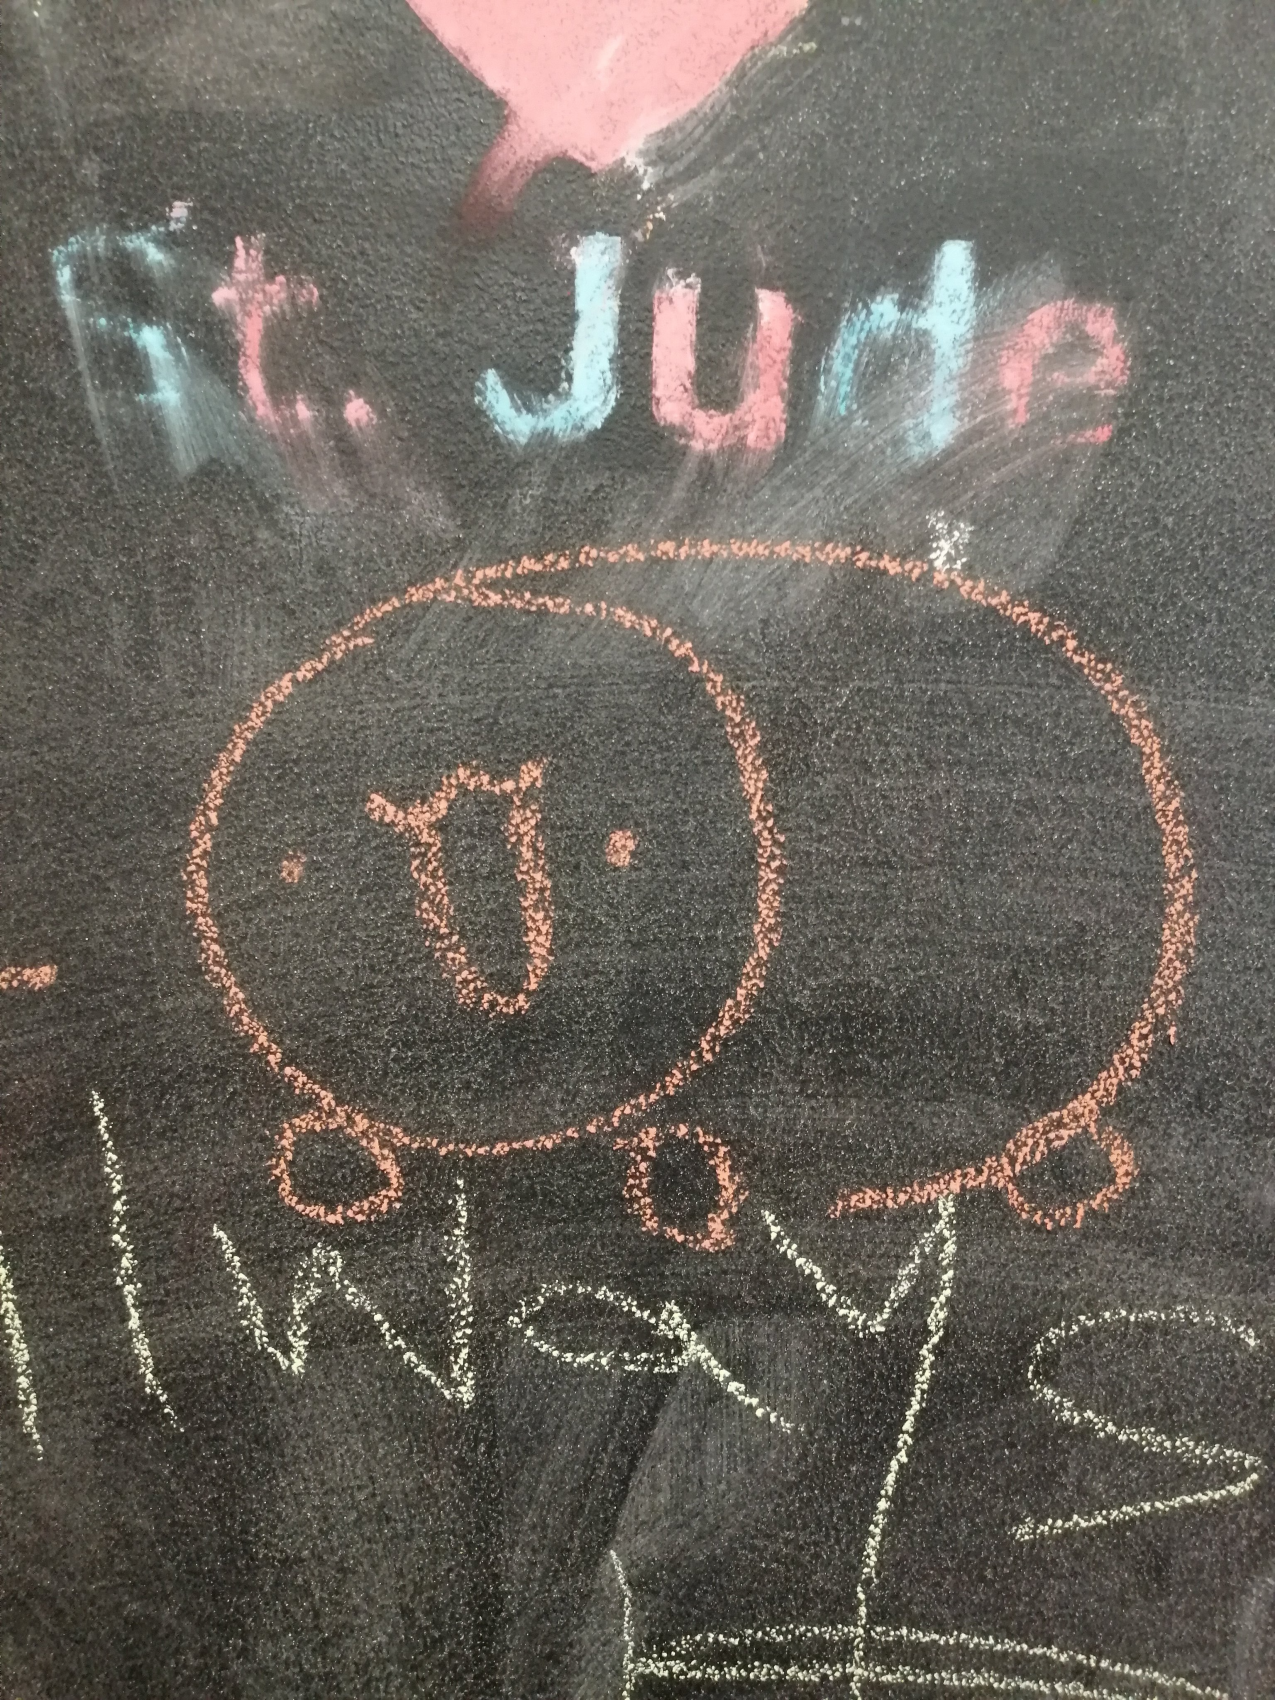 St. Jude
always